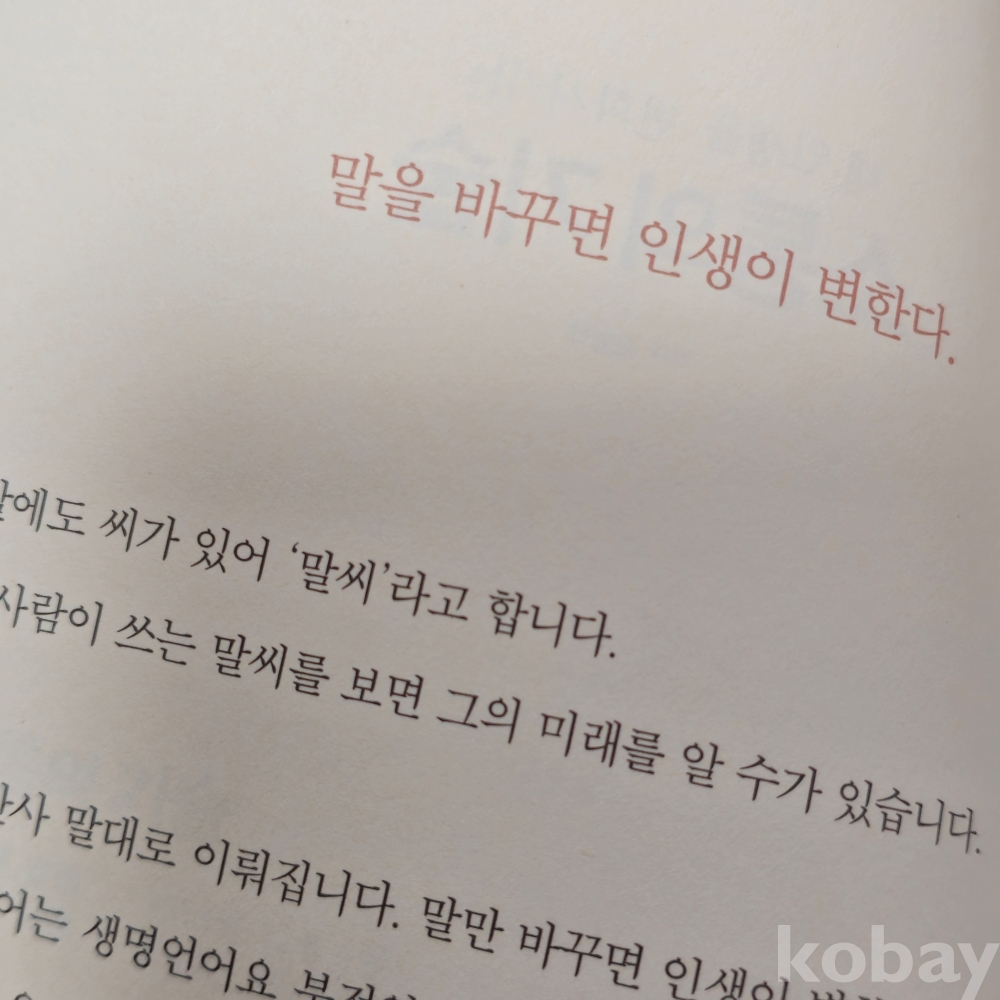 말을 바꾸면 인생이 변한다.
말에도 씨가 있어 ‘말씨’라고 합니다.
사람이 쓰는 말씨를 보면 그의 미래를 알 수가 있습니다.
말대로 이뤄집니다. 말만 바꾸면 인생이
생명언어요
kobay